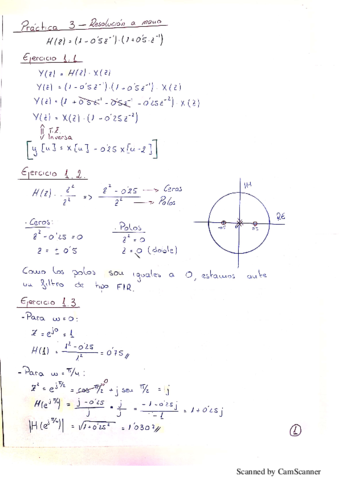 Práctica 3 - Resolución a mano
H(z) = (1 - 0'5z⁻¹)·(1 + 0'5·z⁻¹)
Ejercicio 1.1
Y(z) = H(z)·X(z)
Y(z) = (1 - 0'5z⁻¹)·(1 - 0'5z⁻¹)·X(z)
Y(z) = (1 + 0'5z⁻¹ - 0'5z⁻¹ - 0'25z⁻²)·X(z)
Y(z) = X(z)·(1 - 0'25z⁻²)
T.Z. Inversa
[y[n] = x[n] - 0'25 x[n-2]]
Ejercicio 1.2
H(z)·z²/z² => (z² - 0'25)/z² → Ceros → Polos
IM
RE
- Ceros: - Polos:
z² - 0'25 = 0 z² = 0
z = ± 0'5 z = 0 (doble)
Como los polos son iguales a 0, estamos ante
un filtro de tipo FIR.
Ejercicio 1.3
- Para ω = 0:
z = e^{j0} = 1
H(1) = (1² - 0'25)/1² = 0'75 //
- Para ω = π/4:
z² = e^{jπ/2} = cos π/2 + j sen π/2 = j
H(e^{jπ/4}) = (j - 0'25)/j · j/j = (-1 - 0'25j)/-1 = 1 + 0'25j
|H(e^{jπ/4})| = √(1 + 0'25²) = 1'0307 //
1
Scanned by CamScanner